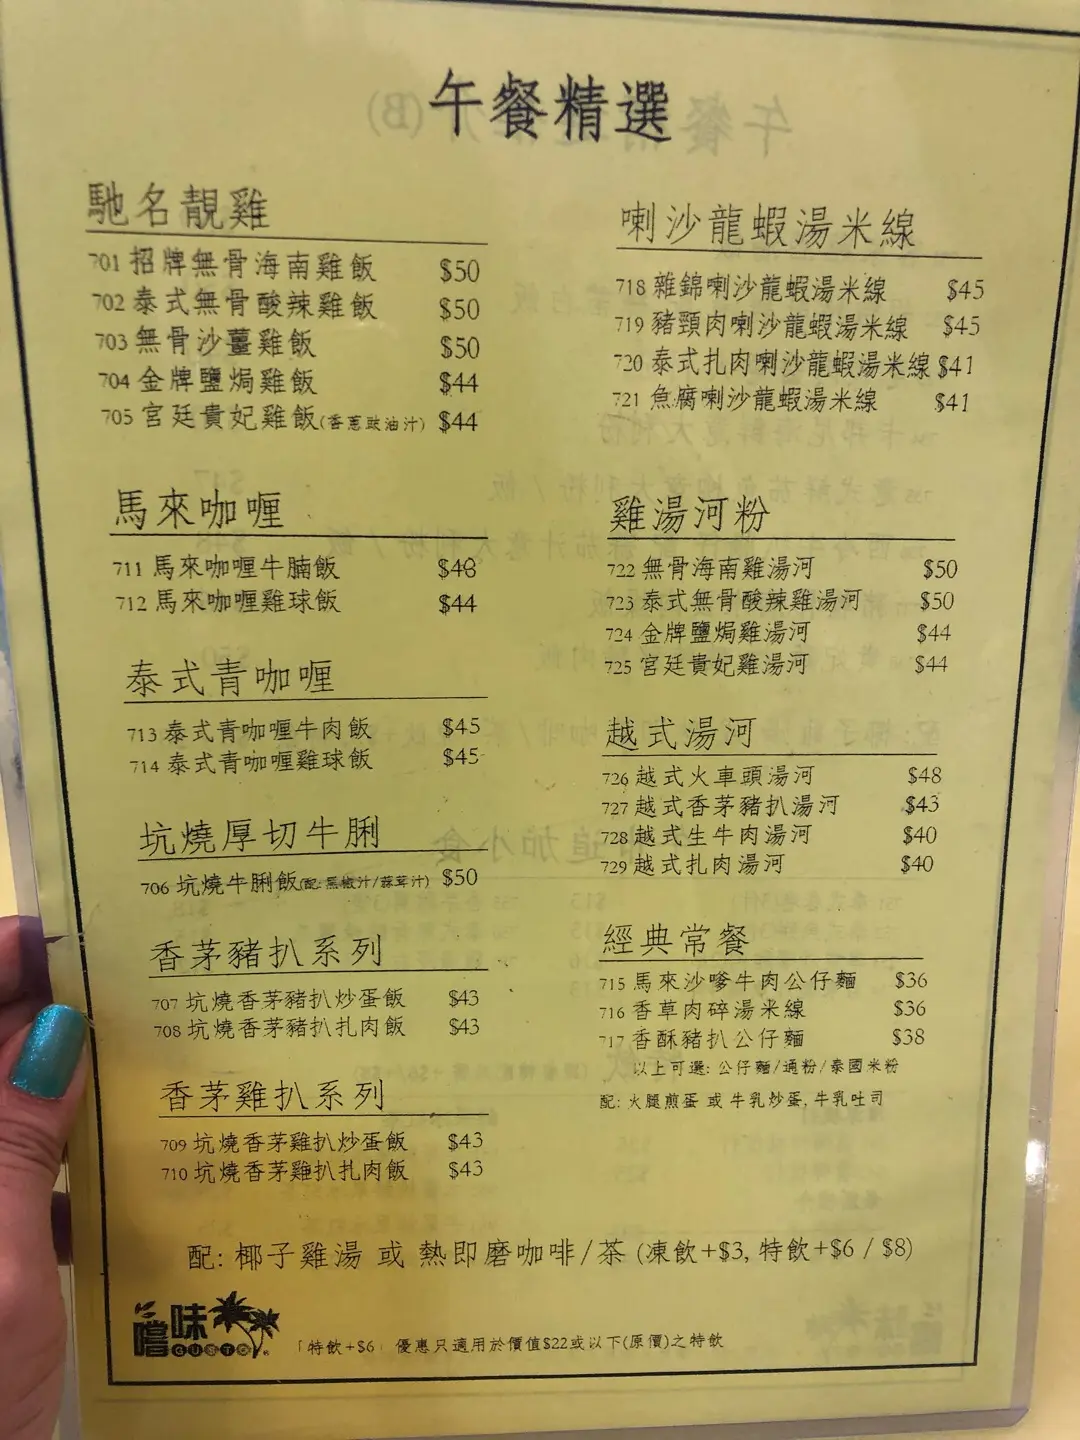 午餐精選
馳名靚雞
701 招牌無骨海南雞飯 $50
702 泰式無骨酸辣雞飯 $50
703 無骨沙薑雞飯 $50
704 金牌鹽焗雞飯 $44
705 宮廷貴妃雞飯(香蔥豉油汁) $44
馬來咖喱
711 馬來咖喱牛腩飯 $48
712 馬來咖喱雞球飯 $44
泰式青咖喱
713 泰式青咖喱牛肉飯 $45
714 泰式青咖喱雞球飯 $45
坑燒厚切牛脷
706 坑燒牛脷飯(配:黑椒汁/蒜茸汁) $50
香茅豬扒系列
707 坑燒香茅豬扒炒蛋飯 $43
708 坑燒香茅豬扒扎肉飯 $43
香茅雞扒系列
709 坑燒香茅雞扒炒蛋飯 $43
710 坑燒香茅雞扒扎肉飯 $43
喇沙龍蝦湯米線
718 雜錦喇沙龍蝦湯米線 $45
719 豬頸肉喇沙龍蝦湯米線 $45
720 泰式扎肉喇沙龍蝦湯米線 $41
721 魚腐喇沙龍蝦湯米線 $41
雞湯河粉
722 無骨海南雞湯河 $50
723 泰式無骨酸辣雞湯河 $50
724 金牌鹽焗雞湯河 $44
725 宮廷貴妃雞湯河 $44
越式湯河
726 越式火車頭湯河 $48
727 越式香茅豬扒湯河 $43
728 越式生牛肉湯河 $40
729 越式扎肉湯河 $40
經典常餐
715 馬來沙嗲牛肉公仔麵 $36
716 香草肉碎湯米線 $36
717 香酥豬扒公仔麵 $38
以上可選: 公仔麵/通粉/泰國米粉
配: 火腿煎蛋 或 牛乳炒蛋, 牛乳吐司
配: 椰子雞湯 或 熱即磨咖啡/茶 (凍飲+$3, 特飲+$6 / $8)
嚐味
GUSTO
「特飲+$6」優惠只適用於價值$22或以下(原價)之特飲